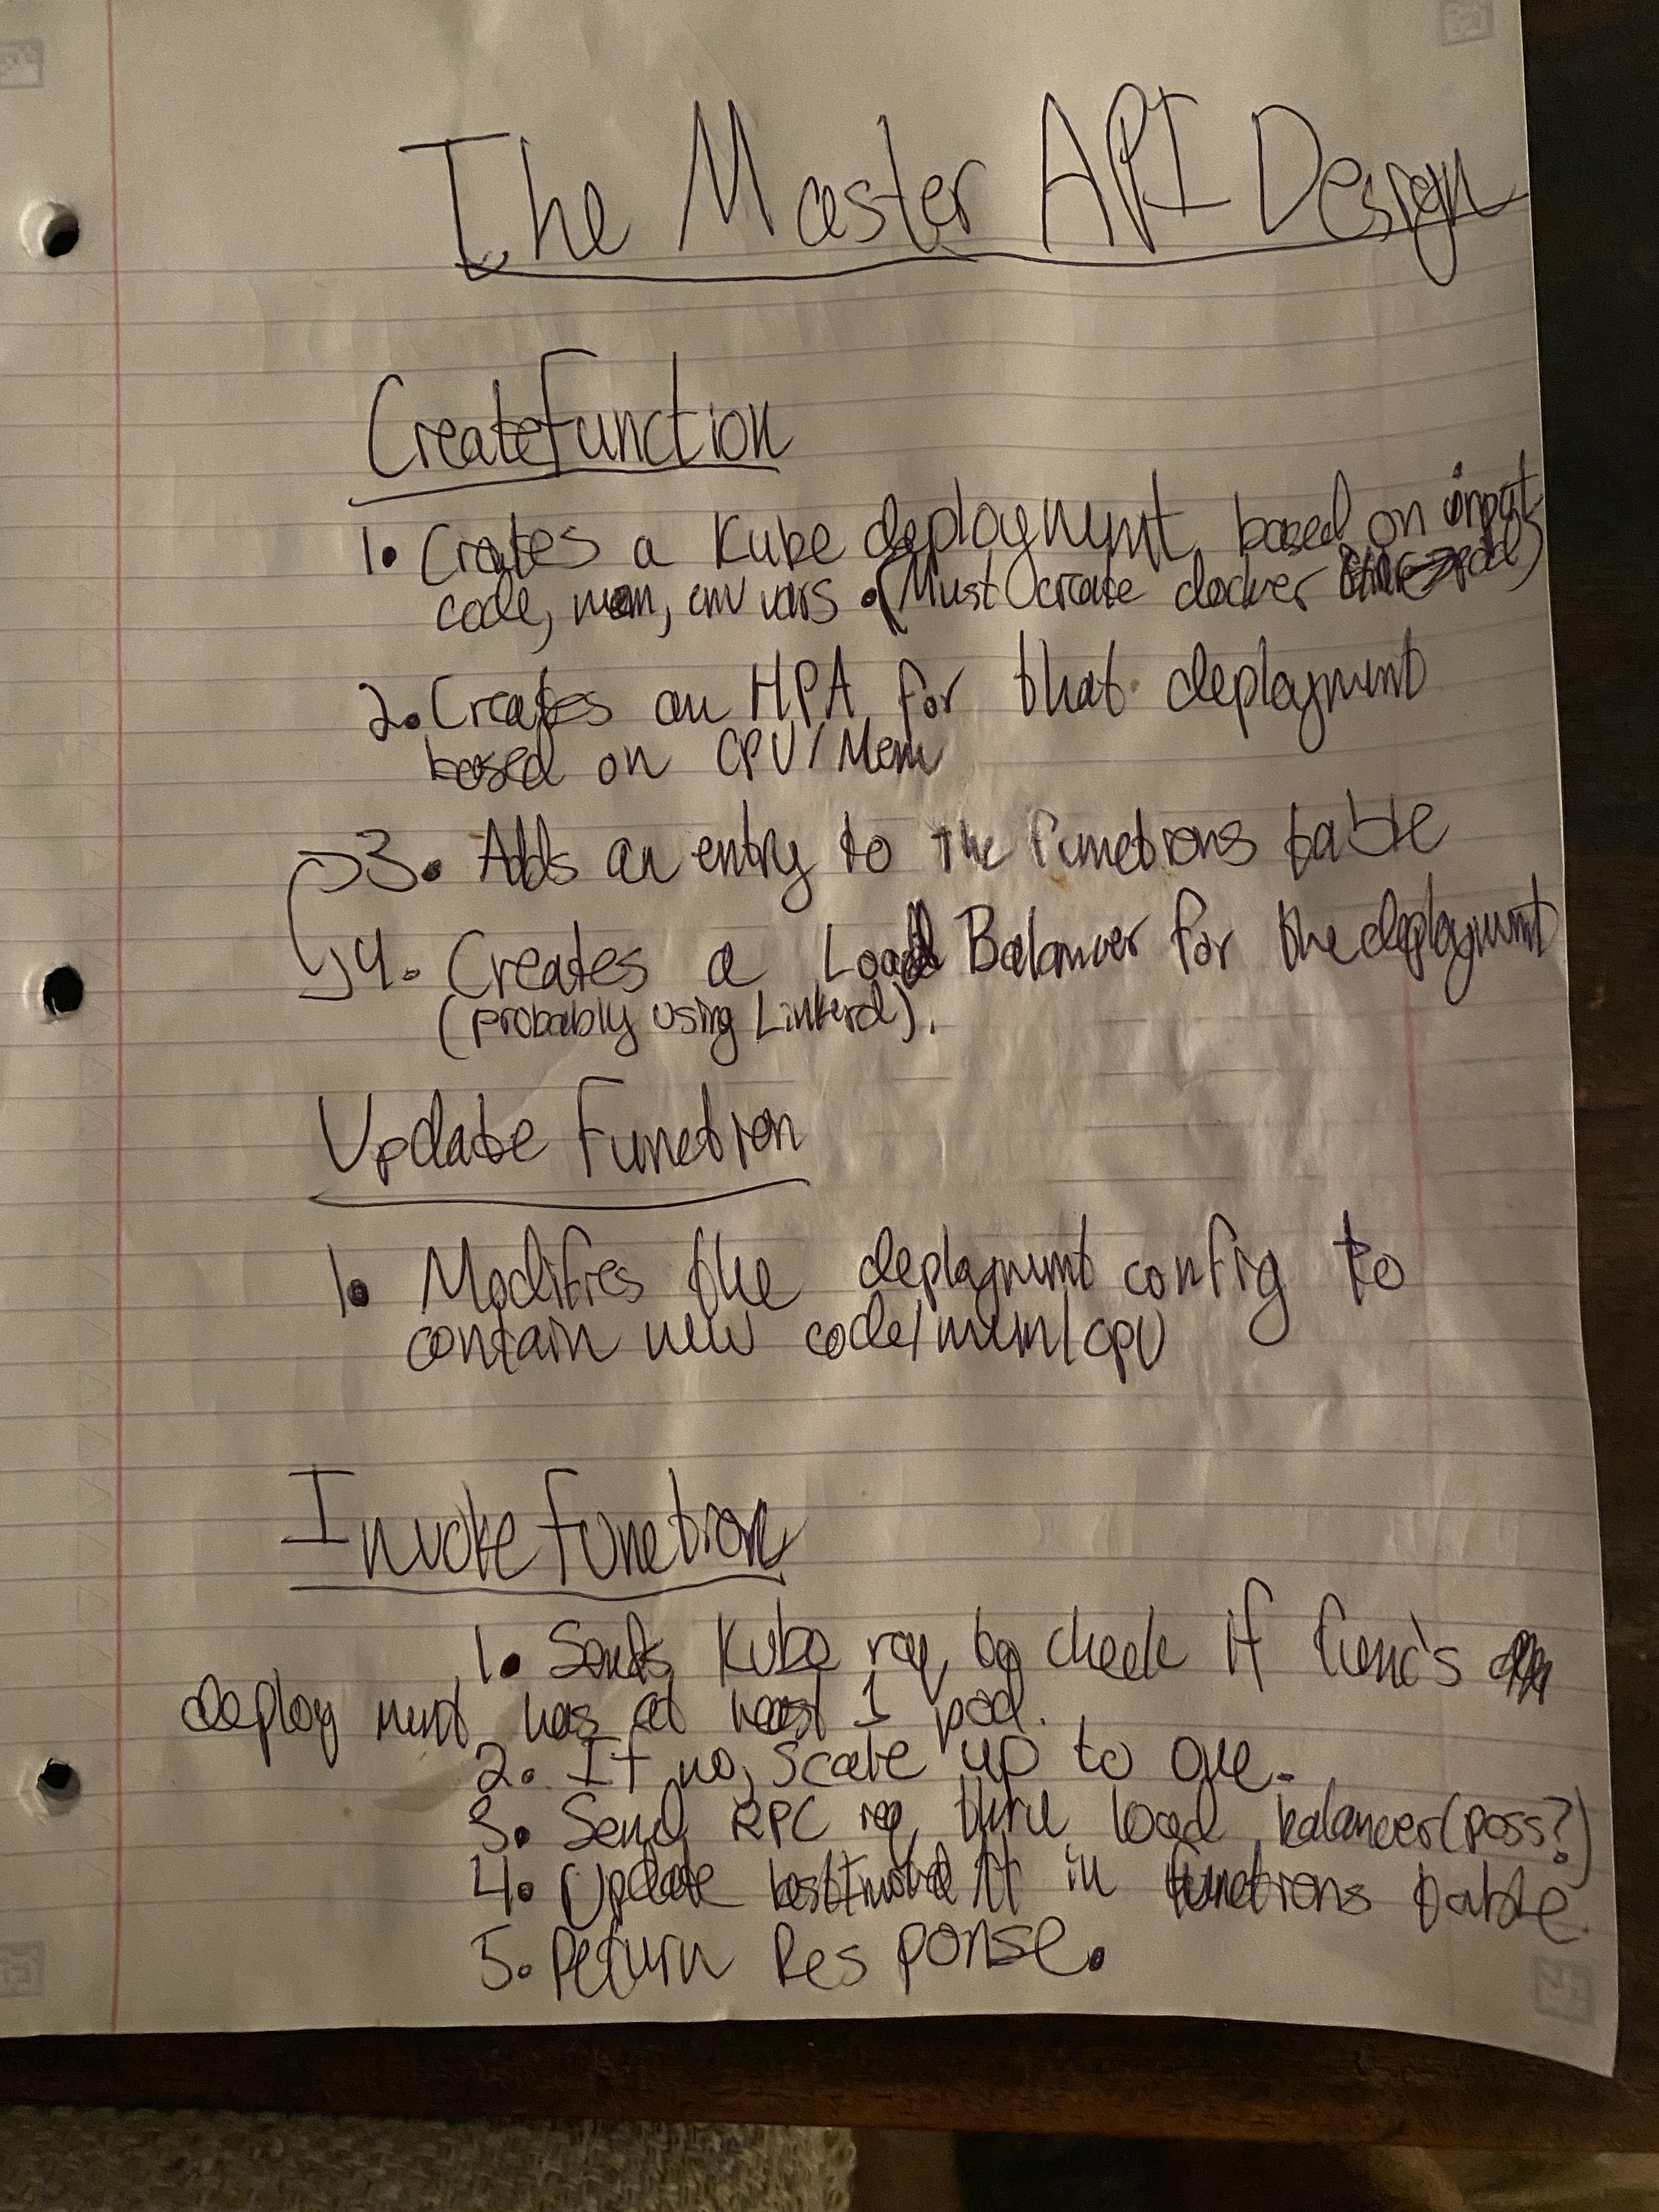 The Master API Design
CreateFunction
1. Creates a Kube deployment based on input
code, mem, env vars. (Must create docker → pod)
2. Creates an HPA for that deployment
based on CPU/Mem
3. Adds an entry to the functions table
4. Creates a Load Balancer for the deployment
(probably using Linkerd).
Update Function
1. Modifies the deployment config to
contain new code/mem/cpu
Invoke function
1. Sends Kube req to check if func's
deployment has at least 1 pod.
2. If no, scale up to one.
3. Send RPC req thru load balancer (poss?)
4. Update lastInvoked in functions table.
5. Return Response.